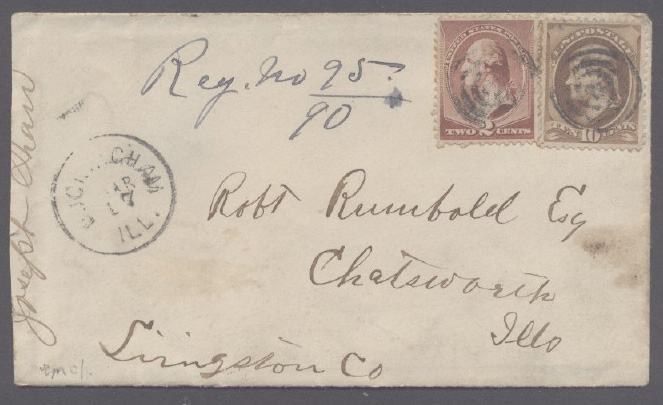 Reg. No 95
90
UNITED STATES POSTAGE
TWO 2 CENTS
U.S. POSTAGE
TEN 10 CENTS
BUCKINGHAM
ILL.
Robt Rumbold Esq
Chatsworth
Ills
Livingston Co
Joseph Shaw